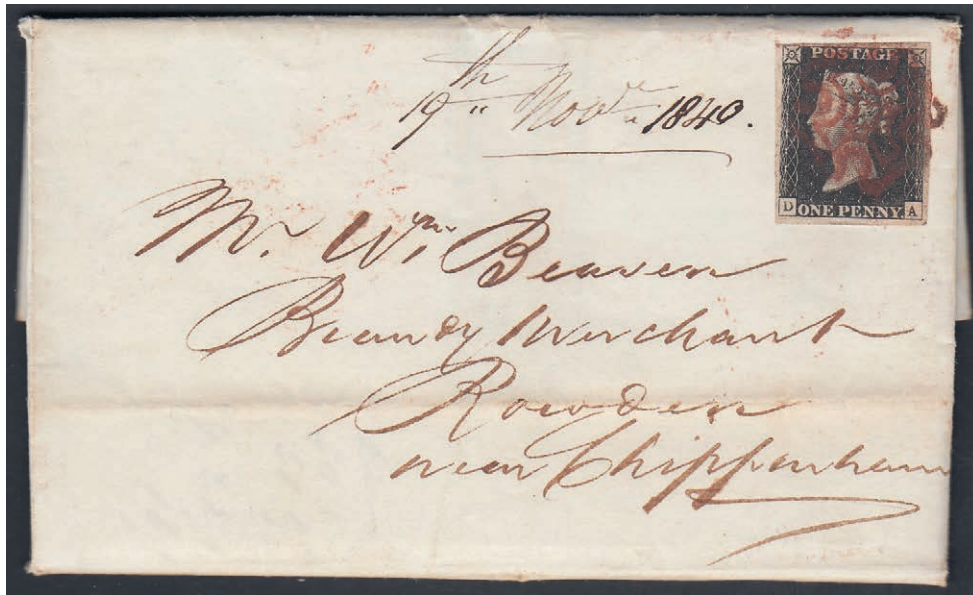 19th Novr 1840.
POSTAGE
D ONE PENNY A
Mr. Wm. Beaven
Brandy Merchant
Rowden
near Chippenham